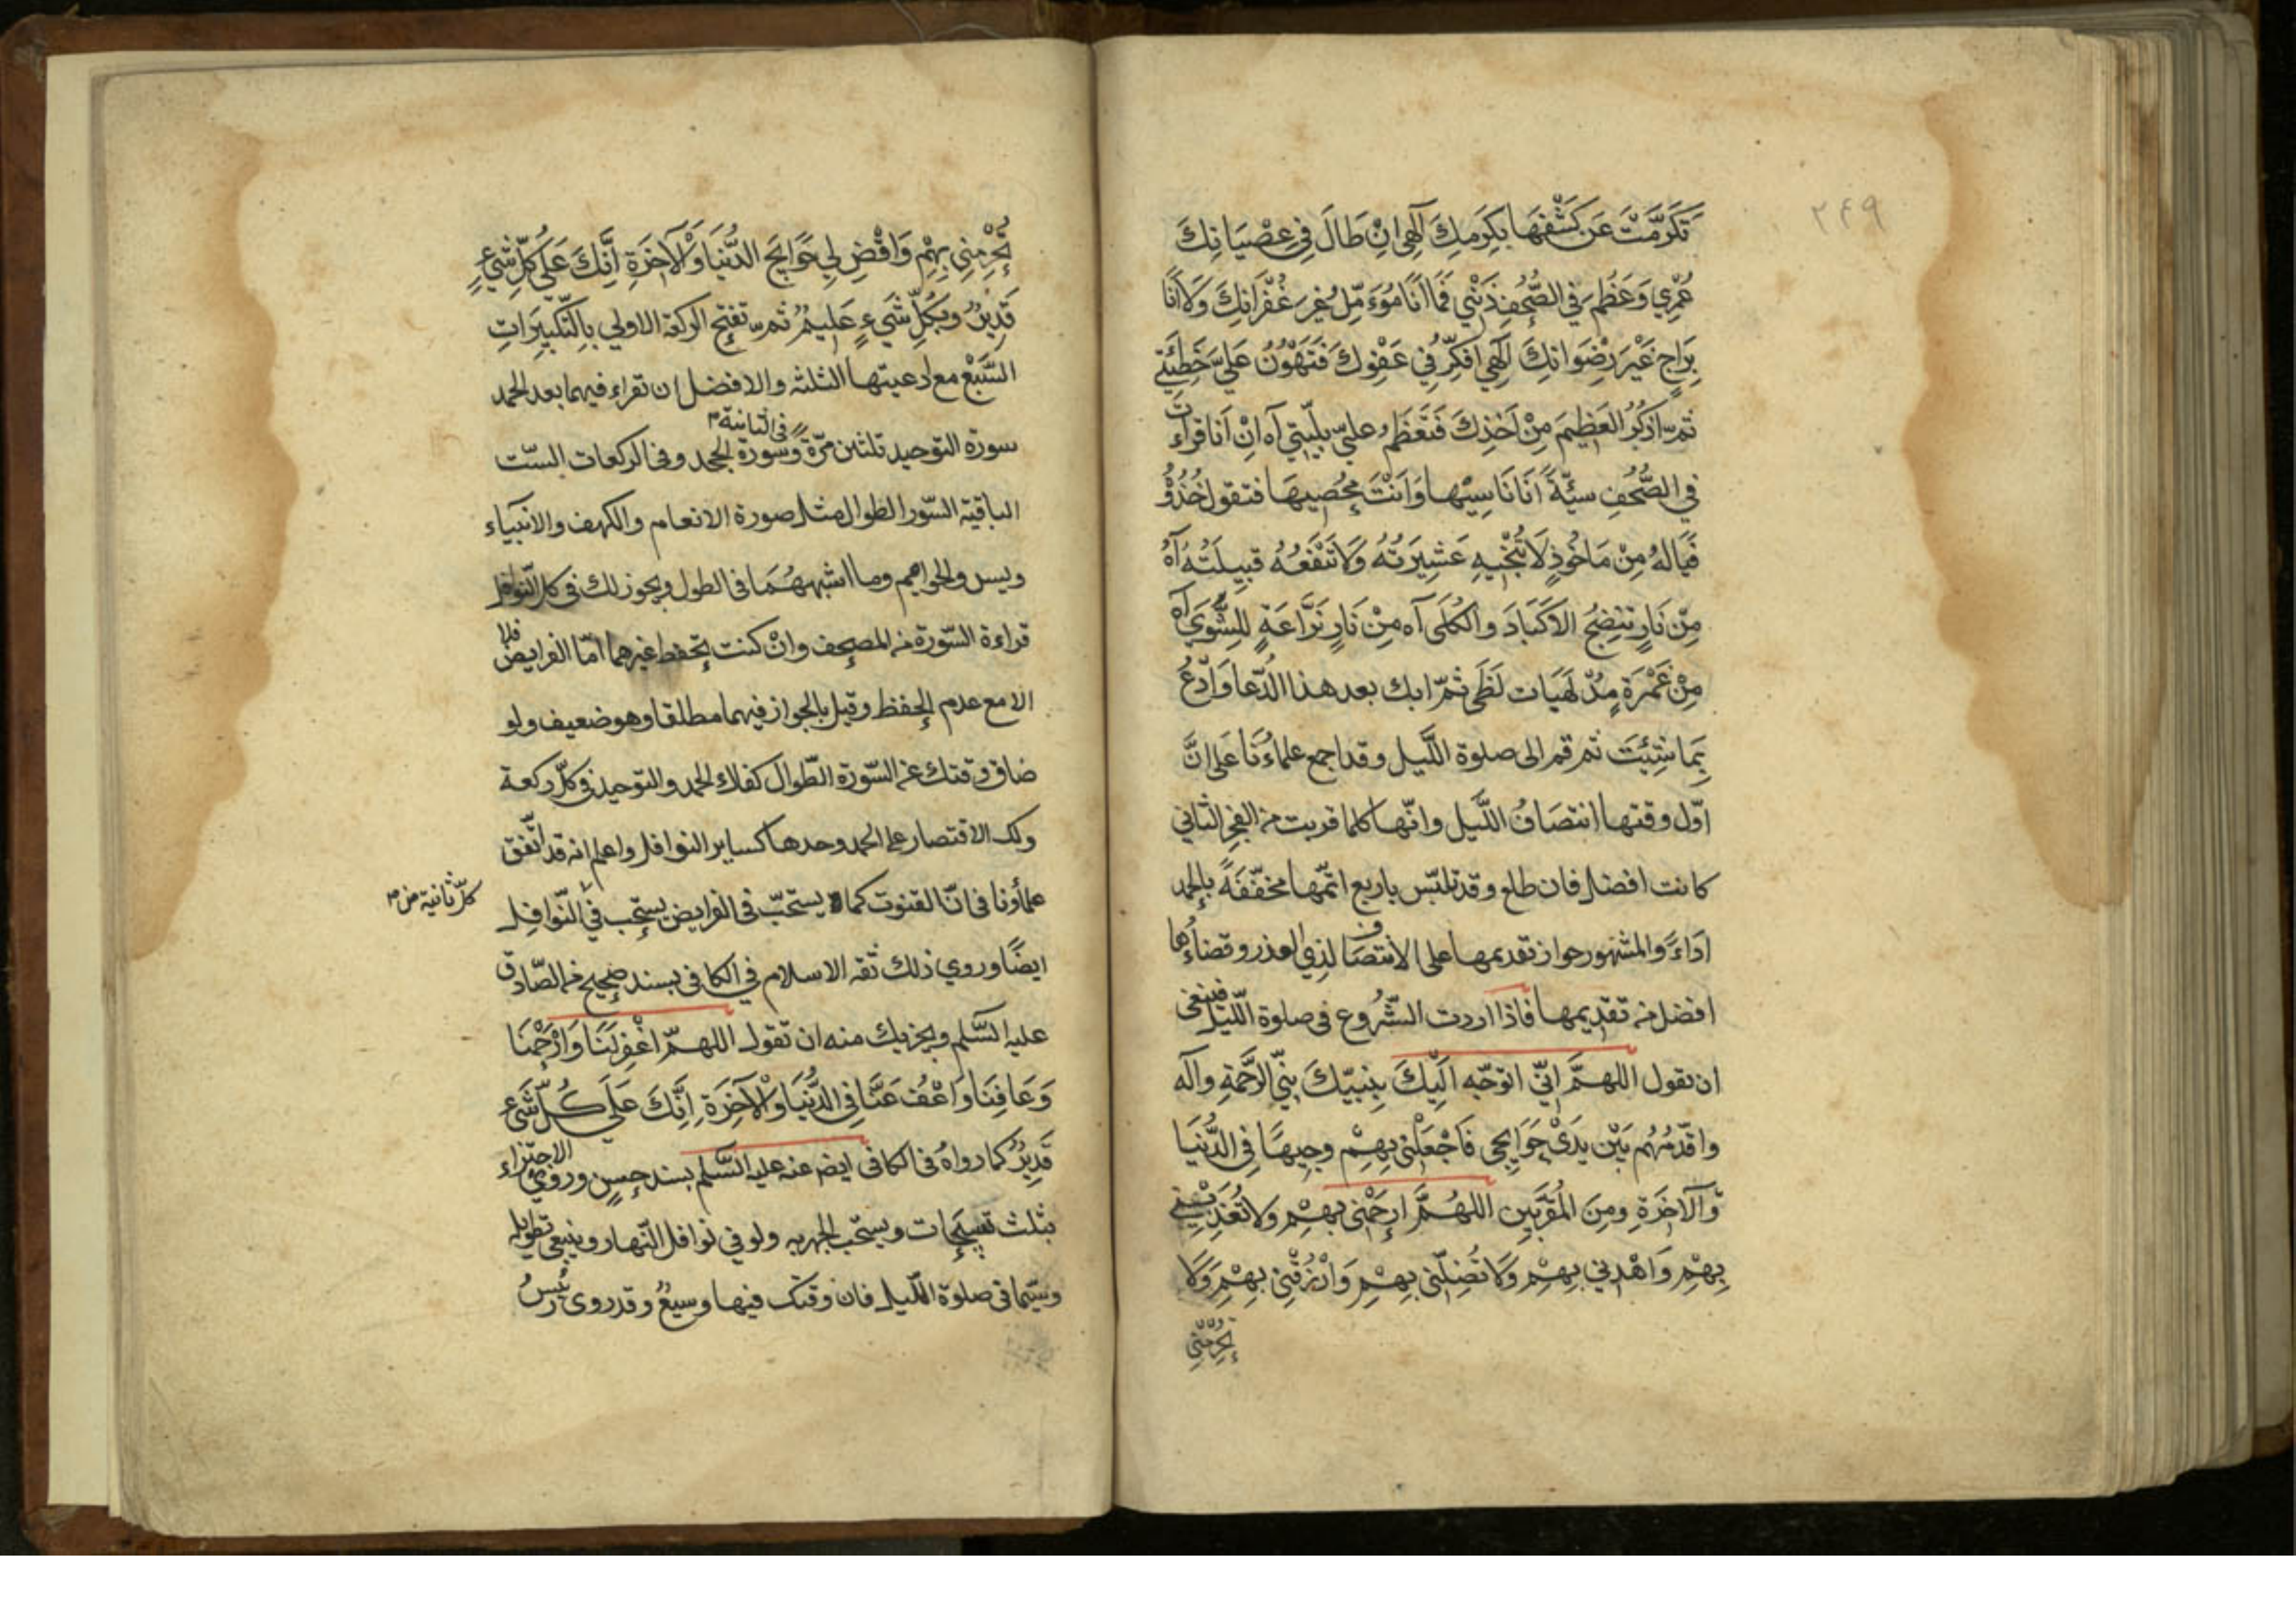 ۲۴۹
تَكَرَّمْتَ عَن كَشْفِهَا بِكَرَمِكَ اِلٰهِي اِنْ طَالَ فِي عِصْيَانِكَ
عُمْرِي وَعَظُمَ فِي الصُّحُفِ ذَنْبِي فَمَا اَنَا مُؤَمِّل غَيْرَ غُفْرَانِكَ وَلَا اَنَا
بِرَاجٍ غَيْرَ رِضْوَانِكَ اِلٰهِي اُفَكِّرُ فِي عَفْوِكَ فَتَهُوْنُ عَلَيَّ خَطِيْئَتِي
ثمّ اَذْكُرُ العَظِيْمَ مِنْ اَخْذِكَ فَتَعْظُمُ عليّ بليّتي آه اِنْ اَنَا قرأت
في الصُّحُفِ سيّئةً اَنَا نَاسِيْها وَاَنْتَ مُحْصِيهَا فتقول خُذُوْهُ
فَيَالَهُ مِنْ مَاخُوْذٍ لَا تُنْجْيهِ عَشِيرَتُهُ وَلَا تَنْفَعُهُ قَبِيلَتُهُ آه
مِنْ نَارٍ تنضِجُ الاَكْبَادَ والكُلَى آه مِنْ نَارٍ نَزَّاعَةٍ لِلشَّوَى آه
مِنْ غَمْرَةٍ مِنْ لَهَبَات لَظَى ثمّ ابك بعد هذا الدُّعا وَادْعُ
بِمَا شِئْتَ ثم قم الى صلوة اللَّيل وقد اجمع علماءُنَا عَلى انَّ
اوّل وقتها انتصَافُ اللَّيل وانّها كلما قربت من الفجر الثاني
كانت افضل فان طلع وقد تلبّس باربع اتمّها مخفّفَةً بالحمد
اَدَاءً والمشهور جواز تقديمها على الانتصَاف لذي العذر وقضاءُها
افضل من تقديمها فاذا اردت الشُّروع فى صلوة اللّيل فينبغى
ان تقول اللهمَّ اِنّي اتوجّه اِلَيْكَ بِنبيّكَ نبيّ الرَّحْمَةِ وآله
واقدّمُهُم بَيْن يَدَيْ حَوَايجى فَاجْعَلْني بِهِمْ وجيهًا فِي الدُّنيَا
وَالآخِرَةِ ومِنَ المُقَرَّبين اللهُمَّ ارحَمْنى بهِمْ ولا تُعَذِّبْنِي
بِهِمْ وَاهْدِني بِهِمْ وَلَا تُضِلّنى بهِمْ وَارْزُقْنِي بِهِمْ وَلَا
تحرمني
تَحْرِمْنِي بِهِمْ وَاقْضِ لِي حَوَايجَ الدُّنْيَا وَالْآخِرَةِ اَنَّكَ عَلى كُلّ شَيْءٍ
قَدِيْرٌ وَبِكُلِّ شَيءٍ عَليمٌ ثم تفتتح الركعة الاولي بِالتكبيرَاتِ
السَّبْع مع ادعيتها الثلثه والافضل ان تقراء فيهما بعد الحمد
سورة التوحيد ثلثين مرّة وسورة الجحد وفى الركعات السّت
فى الثانية
الباقية السّور الطوال مثل صورة الانعام والكهف والانبياء
ويس والحواميم وما اشبههُمَا فى الطول ويجوز لك فى كل النوافل
قراءة السّورة من المصحف وانْ كنت تحفظ غيرهما امّا الفرايض فلا
الا مع عدم الحفظ وقيل بالجواز فيهما مطلقا وهو ضعيف ولو
ضاق وقتك عن السّورة الطّوال كفاك الحمد والتوحيد فى كلّ ركعة
ولك الاقتصار على الحمد وحدها كساير النوافل واعلم انه قد اتّفق
علماؤنا فى انّ القنوت كما يستحبّ فى الفرايض يستحب في النّوافِل
كلّ ثانية من
ايضًا وروي ذلك ثقه الاسلام في الكافى بسند صحيح عن الصّادق
عليه السَّلم ويجزيك منه ان تقول اللهمّ اغْفِرلَنَا وَارْحَمْنَا
وَعَافِنَا وَاعْفُ عَنَّا فِي الدُّنْيَا وَالْآخِرَةِ اِنَّكَ عَلَي كُلّ شَيء
قَدِيرٌ كما رواهُ فى الكافى ايضا عنه عليه السَّلم بسند حسنٍ وروي الاجتزاء
بثلث تسبيحات ويستحب الجهر به ولو في نوافل النّهار وينبغي تطويله
وسيّما فى صلوة اللّيل فان وقتك فيها وسيعٌ وقد روى رئيسُ